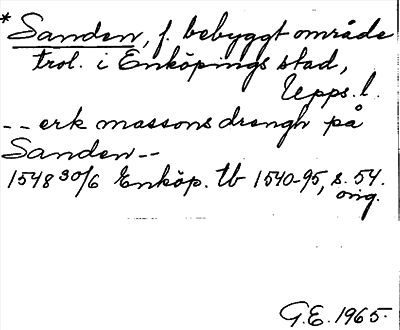 *Sanden, f. bebyggt område
trol. i Enköpings stad,
Upps. l.
-- erk massons drengh på
Sanden --
1548 30/6 Enköp. tb 1540-95, s. 54.
orig.
G.E. 1965.